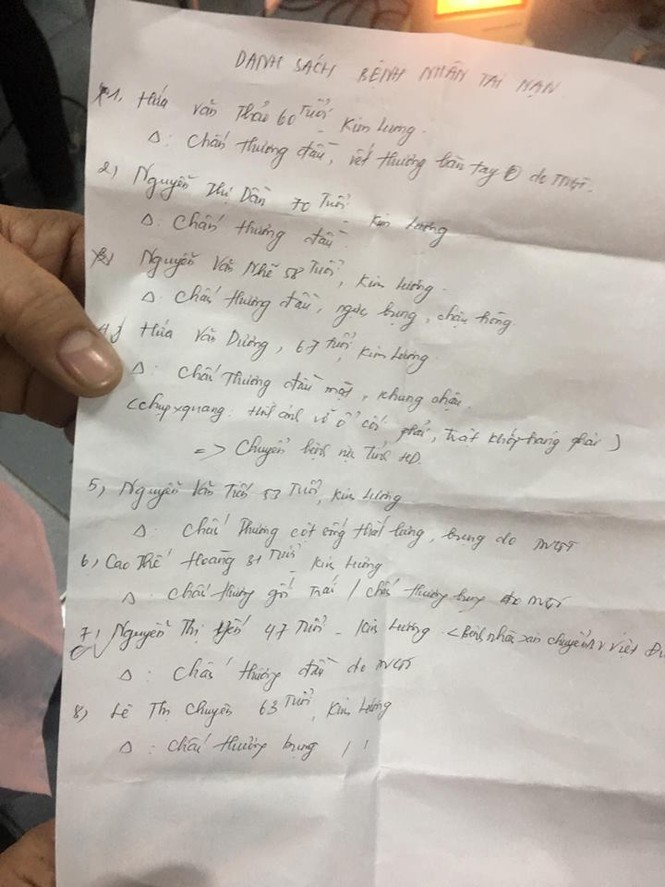 DANH SÁCH BỆNH NHÂN TAI NẠN
1. Hứa Văn Thảo 60 Tuổi - Kim Lương.
Δ: Chấn thương đầu, vết thương bàn tay do TNGT.
2) Nguyễn Thị Dần 70 Tuổi - Kim Lương
Δ: Chấn thương đầu.
3) Nguyễn Văn Nhẽ 58 Tuổi, Kim Lương.
Δ: Chấn thương đầu, ngực bụng, chậu hông
4) Hứa Văn Dưỡng, 67 tuổi, Kim Lương.
Δ: Chấn Thương đầu mặt, khung chậu.
(chụp xquang: Hình ảnh vỡ ổ cối phải, Trật khớp háng phải)
=> Chuyển bệnh viện Tỉnh HD.
5) Nguyễn Văn Tiến 53 Tuổi, Kim Lương
Δ: Chấn Thương cột sống thắt lưng, bụng do TNGT
6) Cao Thế Hoàng 31 Tuổi - Kim Lương
Δ: Chấn thương gối Trái / chấn thương bụng do TNGT
7) Nguyễn Thị Yến 47 Tuổi - Kim Lương. (Bệnh nhân xin chuyển BV Việt Đ
Δ: Chấn thương đầu do TNGT
8) Lê Thị Chuyên 63 Tuổi, Kim Lương
Δ: Chấn thương bụng / '